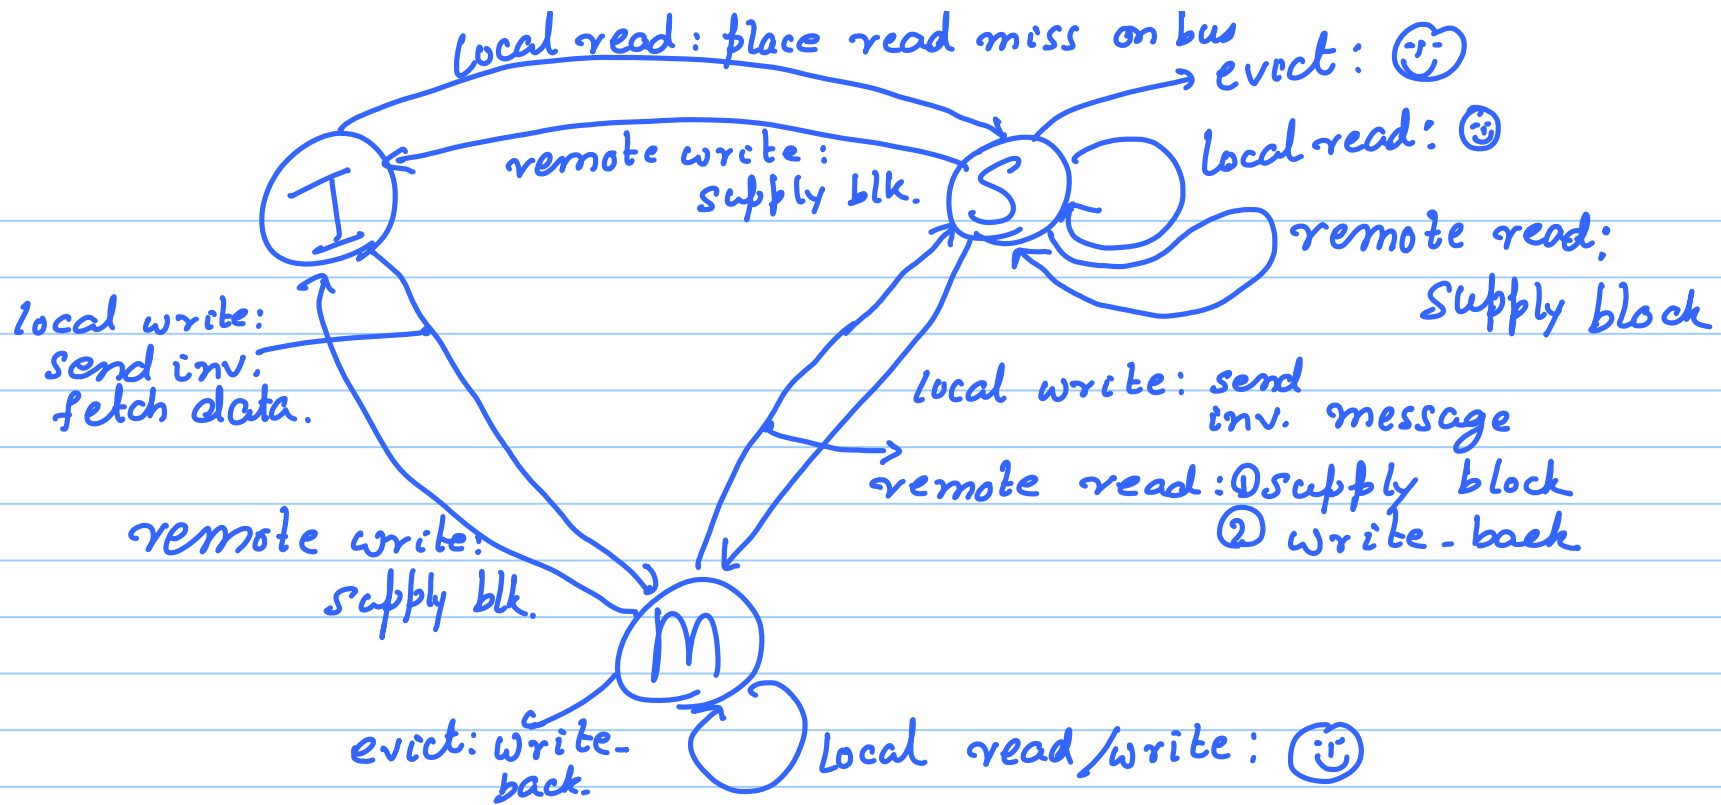 local read: place read miss on bus
evict:
local read:
remote write:
supply blk.
I
S
remote read:
supply block
local write:
send inv.
fetch data.
local write: send
inv. message
remote read: ① supply block
② write-back
remote write:
supply blk.
M
evict: write-
back.
local read/write: